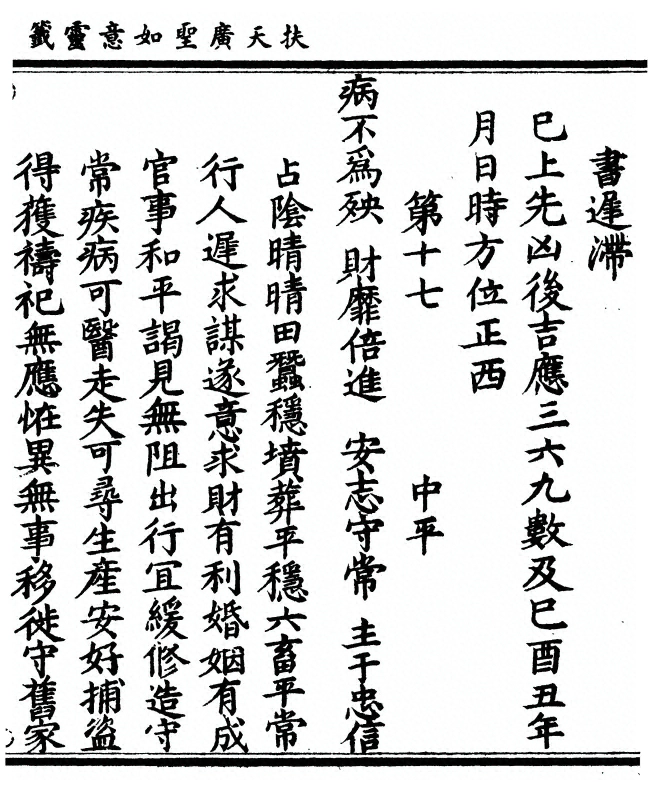 扶天廣聖如意靈籤
書遲滯
巳上先凶後吉應三六九數及巳酉丑年
月日時方位正西
第十七 中平
病不爲殃 財靡倍進 安志守常 主于忠信
占陰晴晴田蠶穩墳葬平穩六畜平常
行人遲求謀遂意求財有利婚姻有成
官事和平謁見無阻出行冝緩修造守
常疾病可醫走失可尋生產安好捕盜
得獲禱祀無應恠異無事移徙守舊家